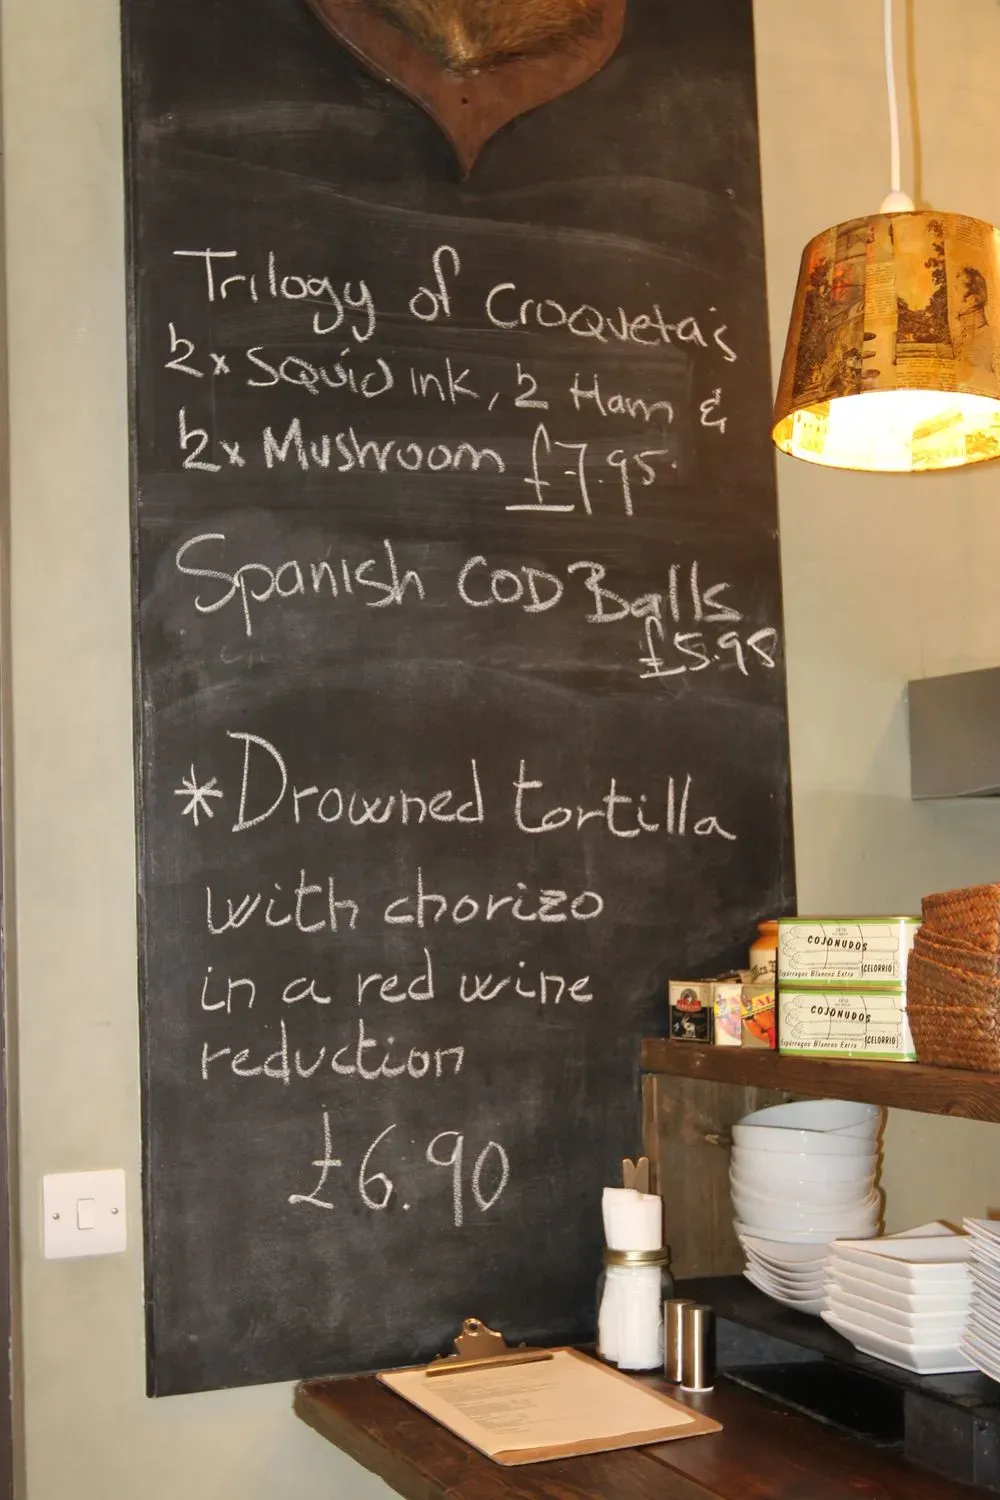 Trilogy of Croqueta's
2x Squid ink, 2 Ham &
2x Mushroom £7.95.
Spanish COD Balls
£5.95
*Drowned tortilla
with chorizo
in a red wine
reduction
£6.90
COJONUDOS
Espárragos Blancos Extra
CELORRIO
COJONUDOS
Espárragos Blancos Extra
CELORRIO